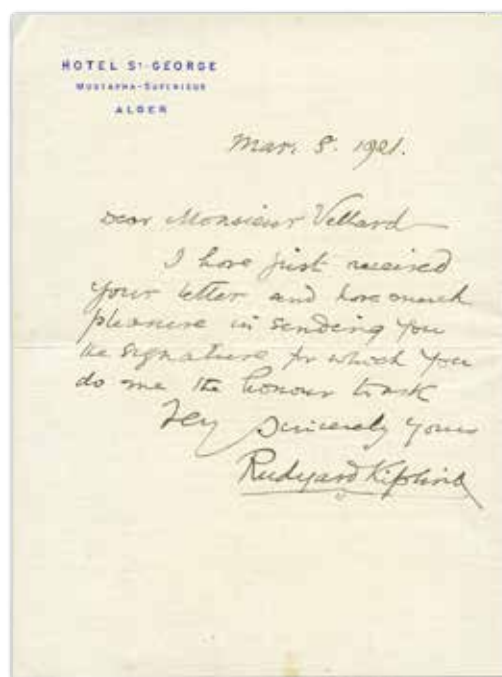 HOTEL ST GEORGE
MUSTAPHA-SUPÉRIEUR
ALGER
Mar. 8. 1921.
Dear Monsieur Vellard
I have just received
your letter and have much
pleasure in sending you
the signature for which you
do me the honour to ask
Very Sincerely yours
Rudyard Kipling